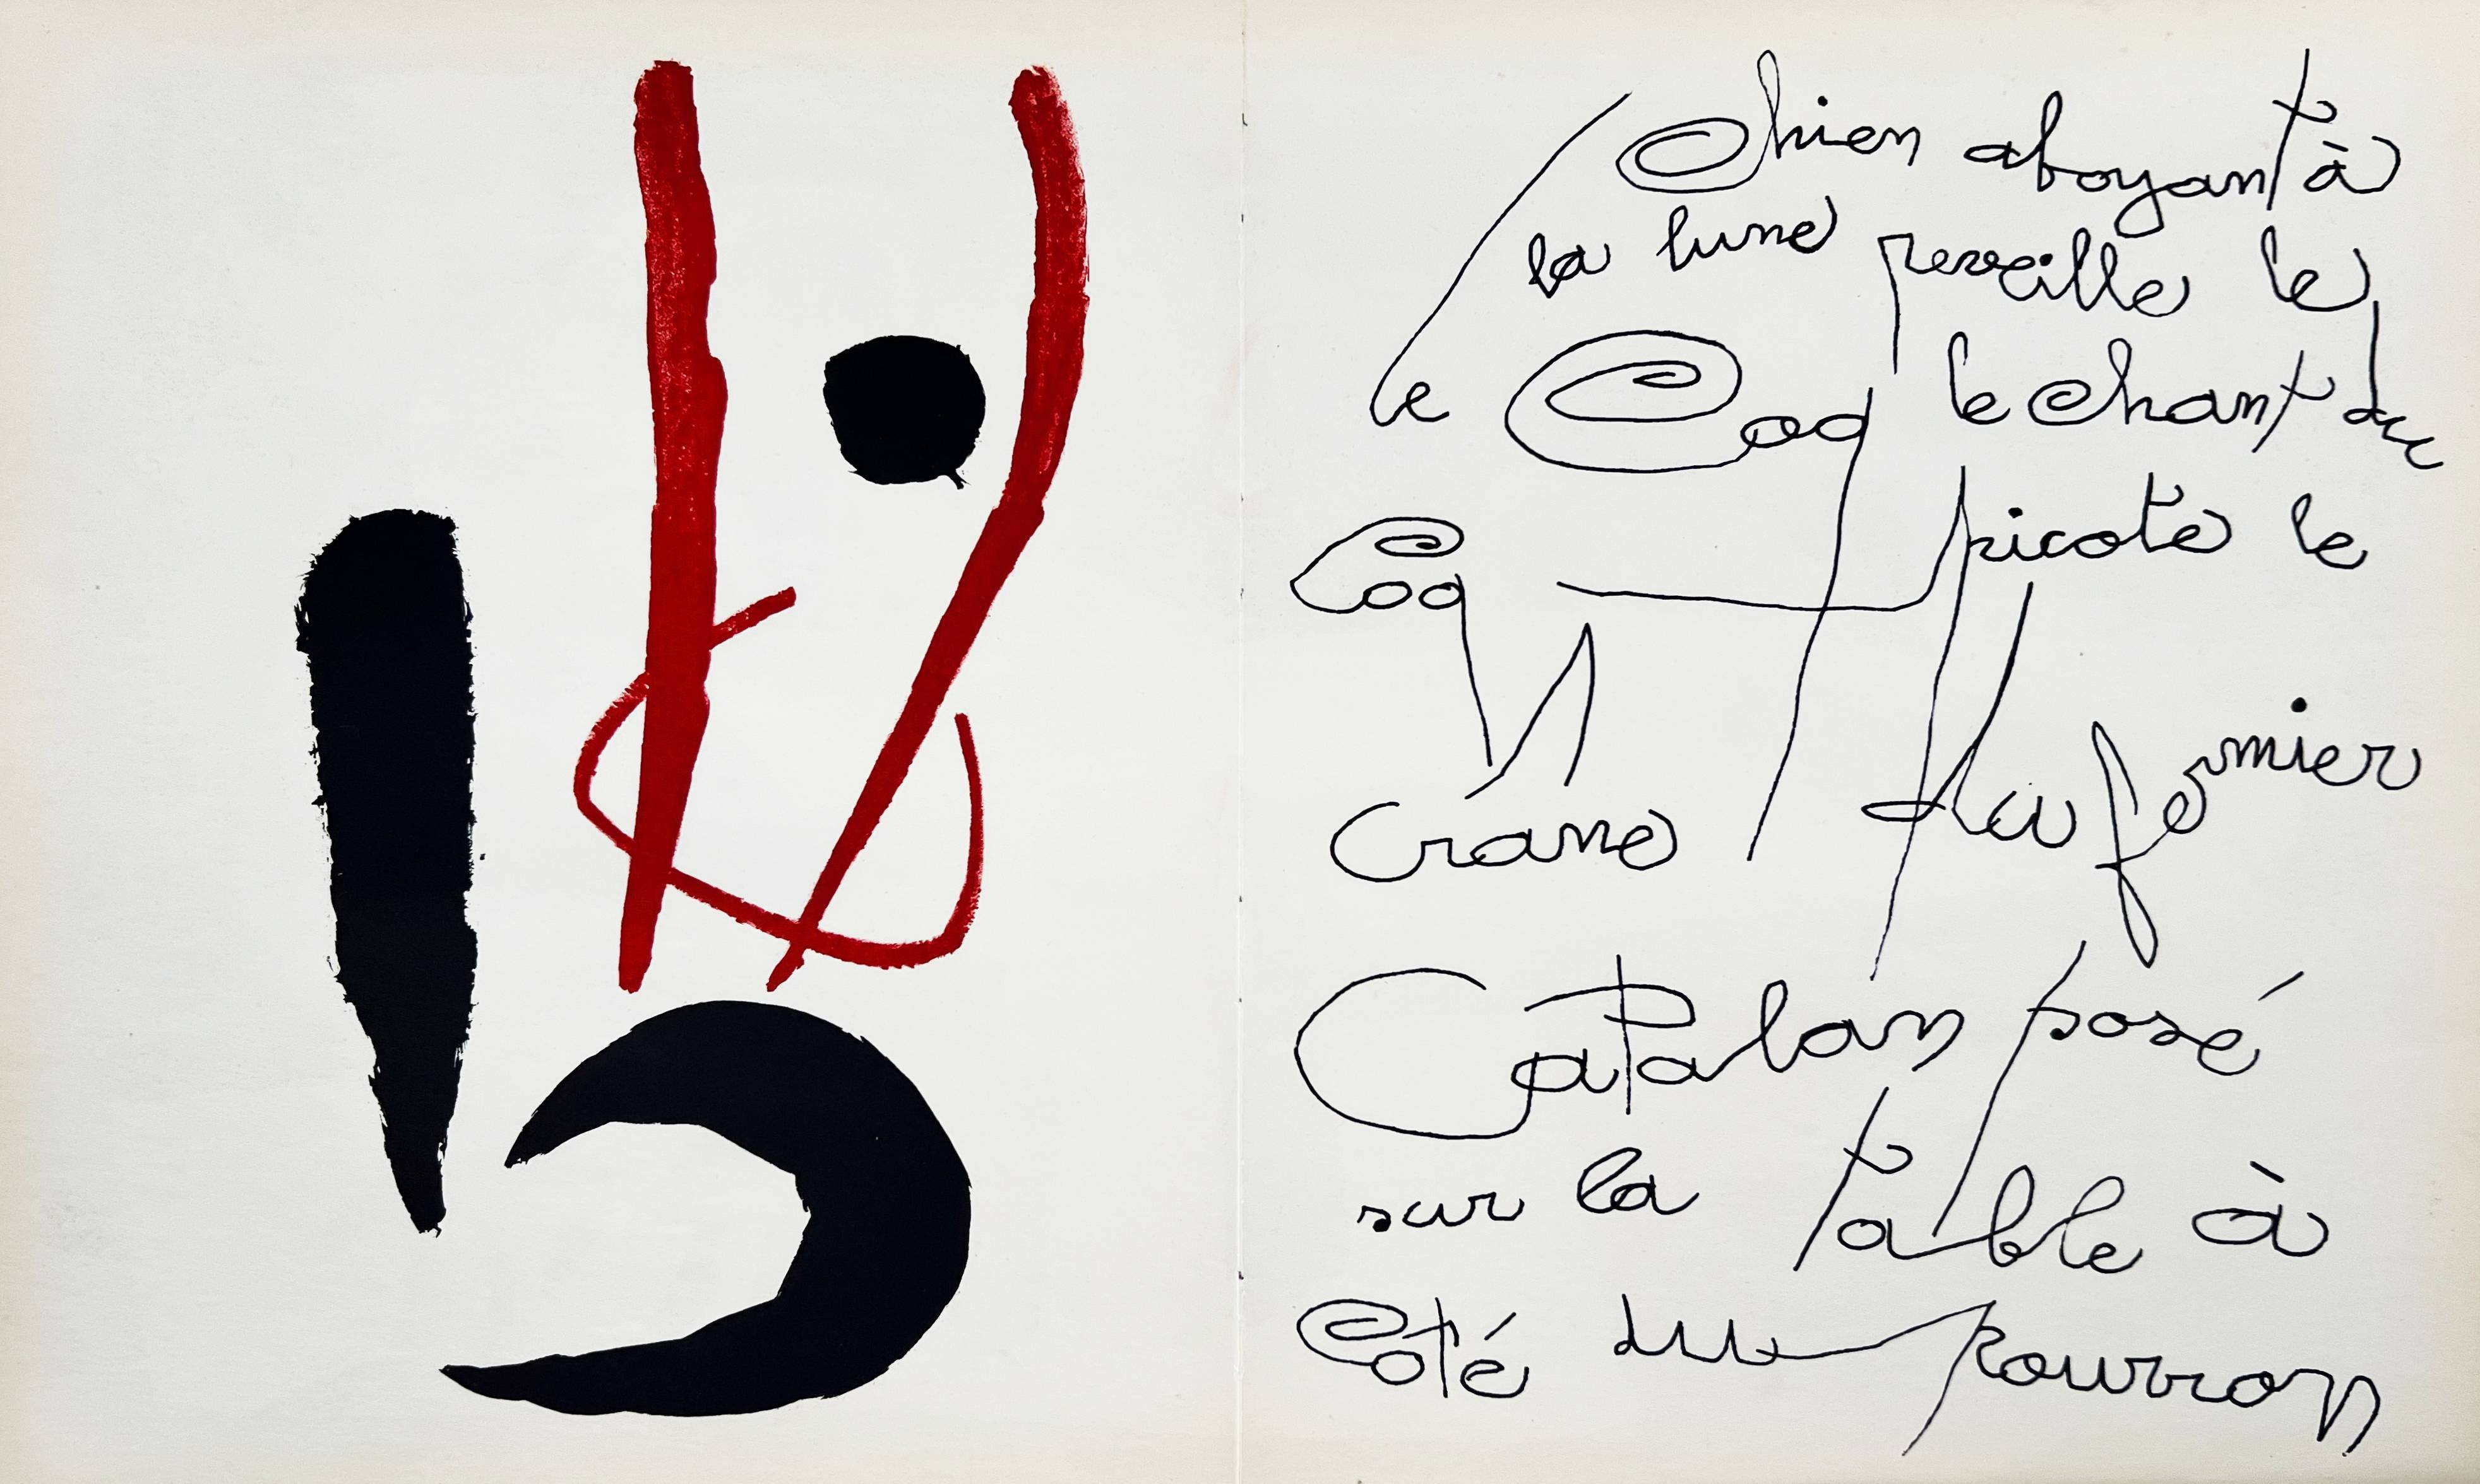 Chien aboyant à
la lune reveille le
le Coq le chant du
Coq picote le
crâne du fermier
Catalan posé
sur la table à
Coté du pourron